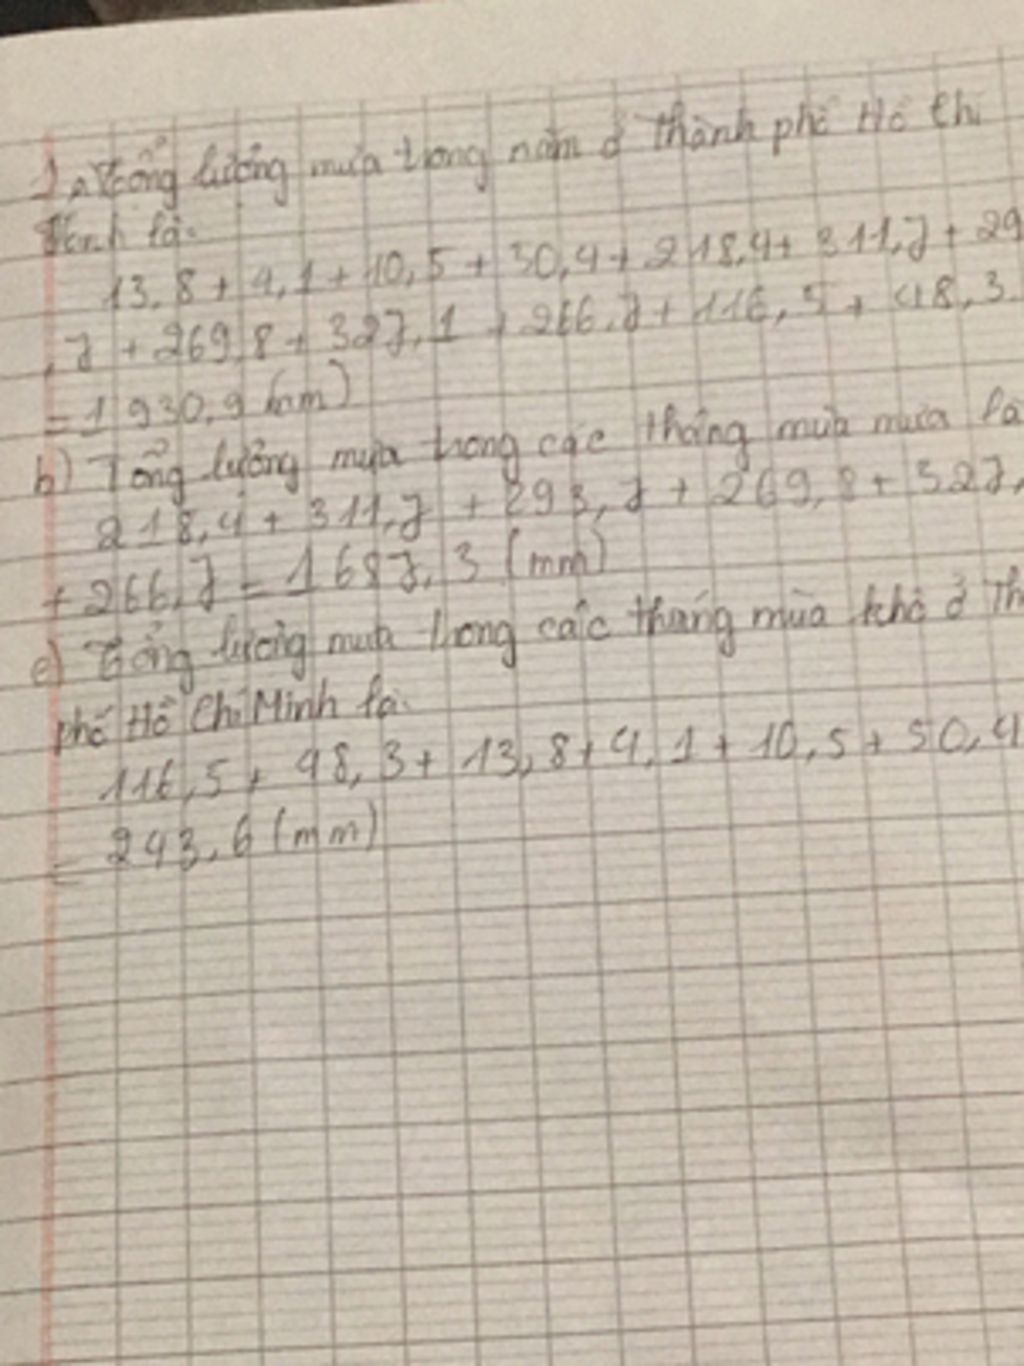 1, a Tổng lượng mưa trong năm ở thành phố Hồ Chí
Minh là:
13,8 + 4,1 + 10,5 + 50,4 + 218,4 + 311,7 + 29
,7 + 269,8 + 327,1 + 266,7 + 116,5 + 48,3
= 1 930,9 (mm)
b) Tổng lượng mưa trong các tháng mùa mưa là
218,4 + 311,7 + 293,7 + 269,8 + 327,
+ 266,7 = 1687,3 (mm)
c) Tổng lượng mưa trong các tháng mùa khô ở Th
phố Hồ Chí Minh là:
116,5 + 48,3 + 13,8 + 4,1 + 10,5 + 50,4
= 243,6 (mm)